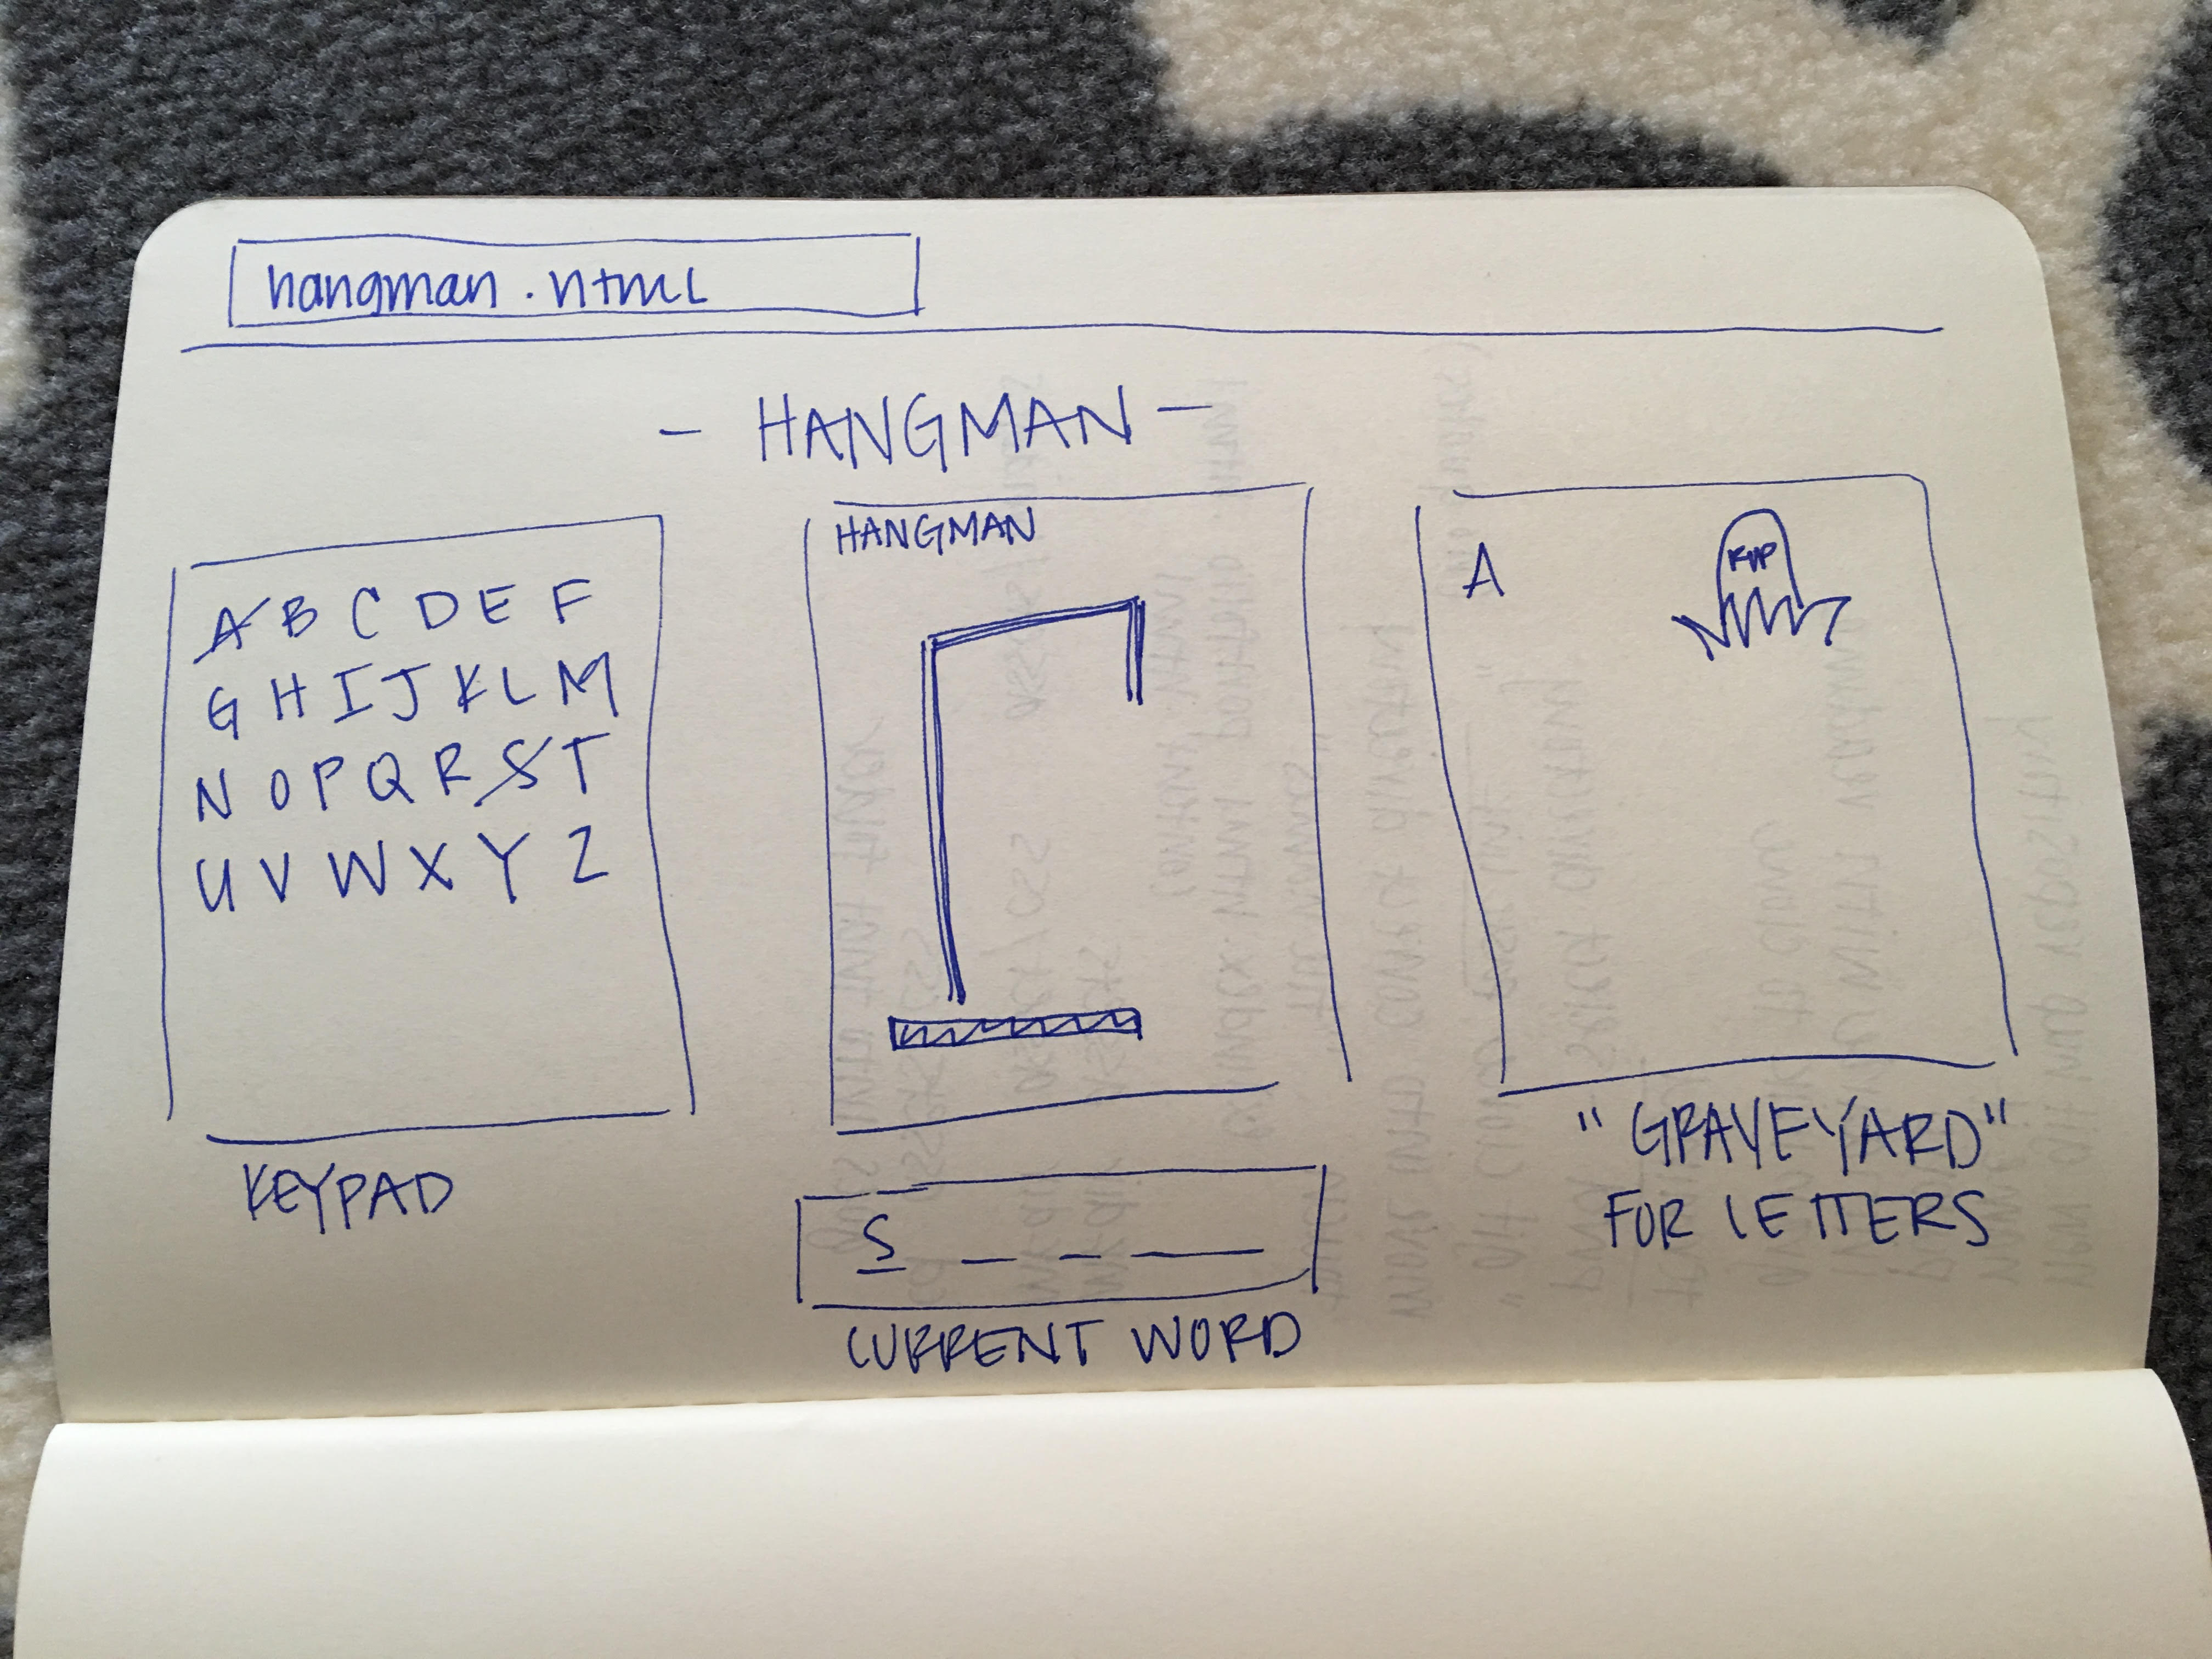 hangman.html
- HANGMAN -
A B C D E F
G H I J K L M
N O P Q R S T
U V W X Y Z
KEYPAD
HANGMAN
S _ _ __
CURRENT WORD
A
RIP
"GRAVEYARD"
FOR LETTERS